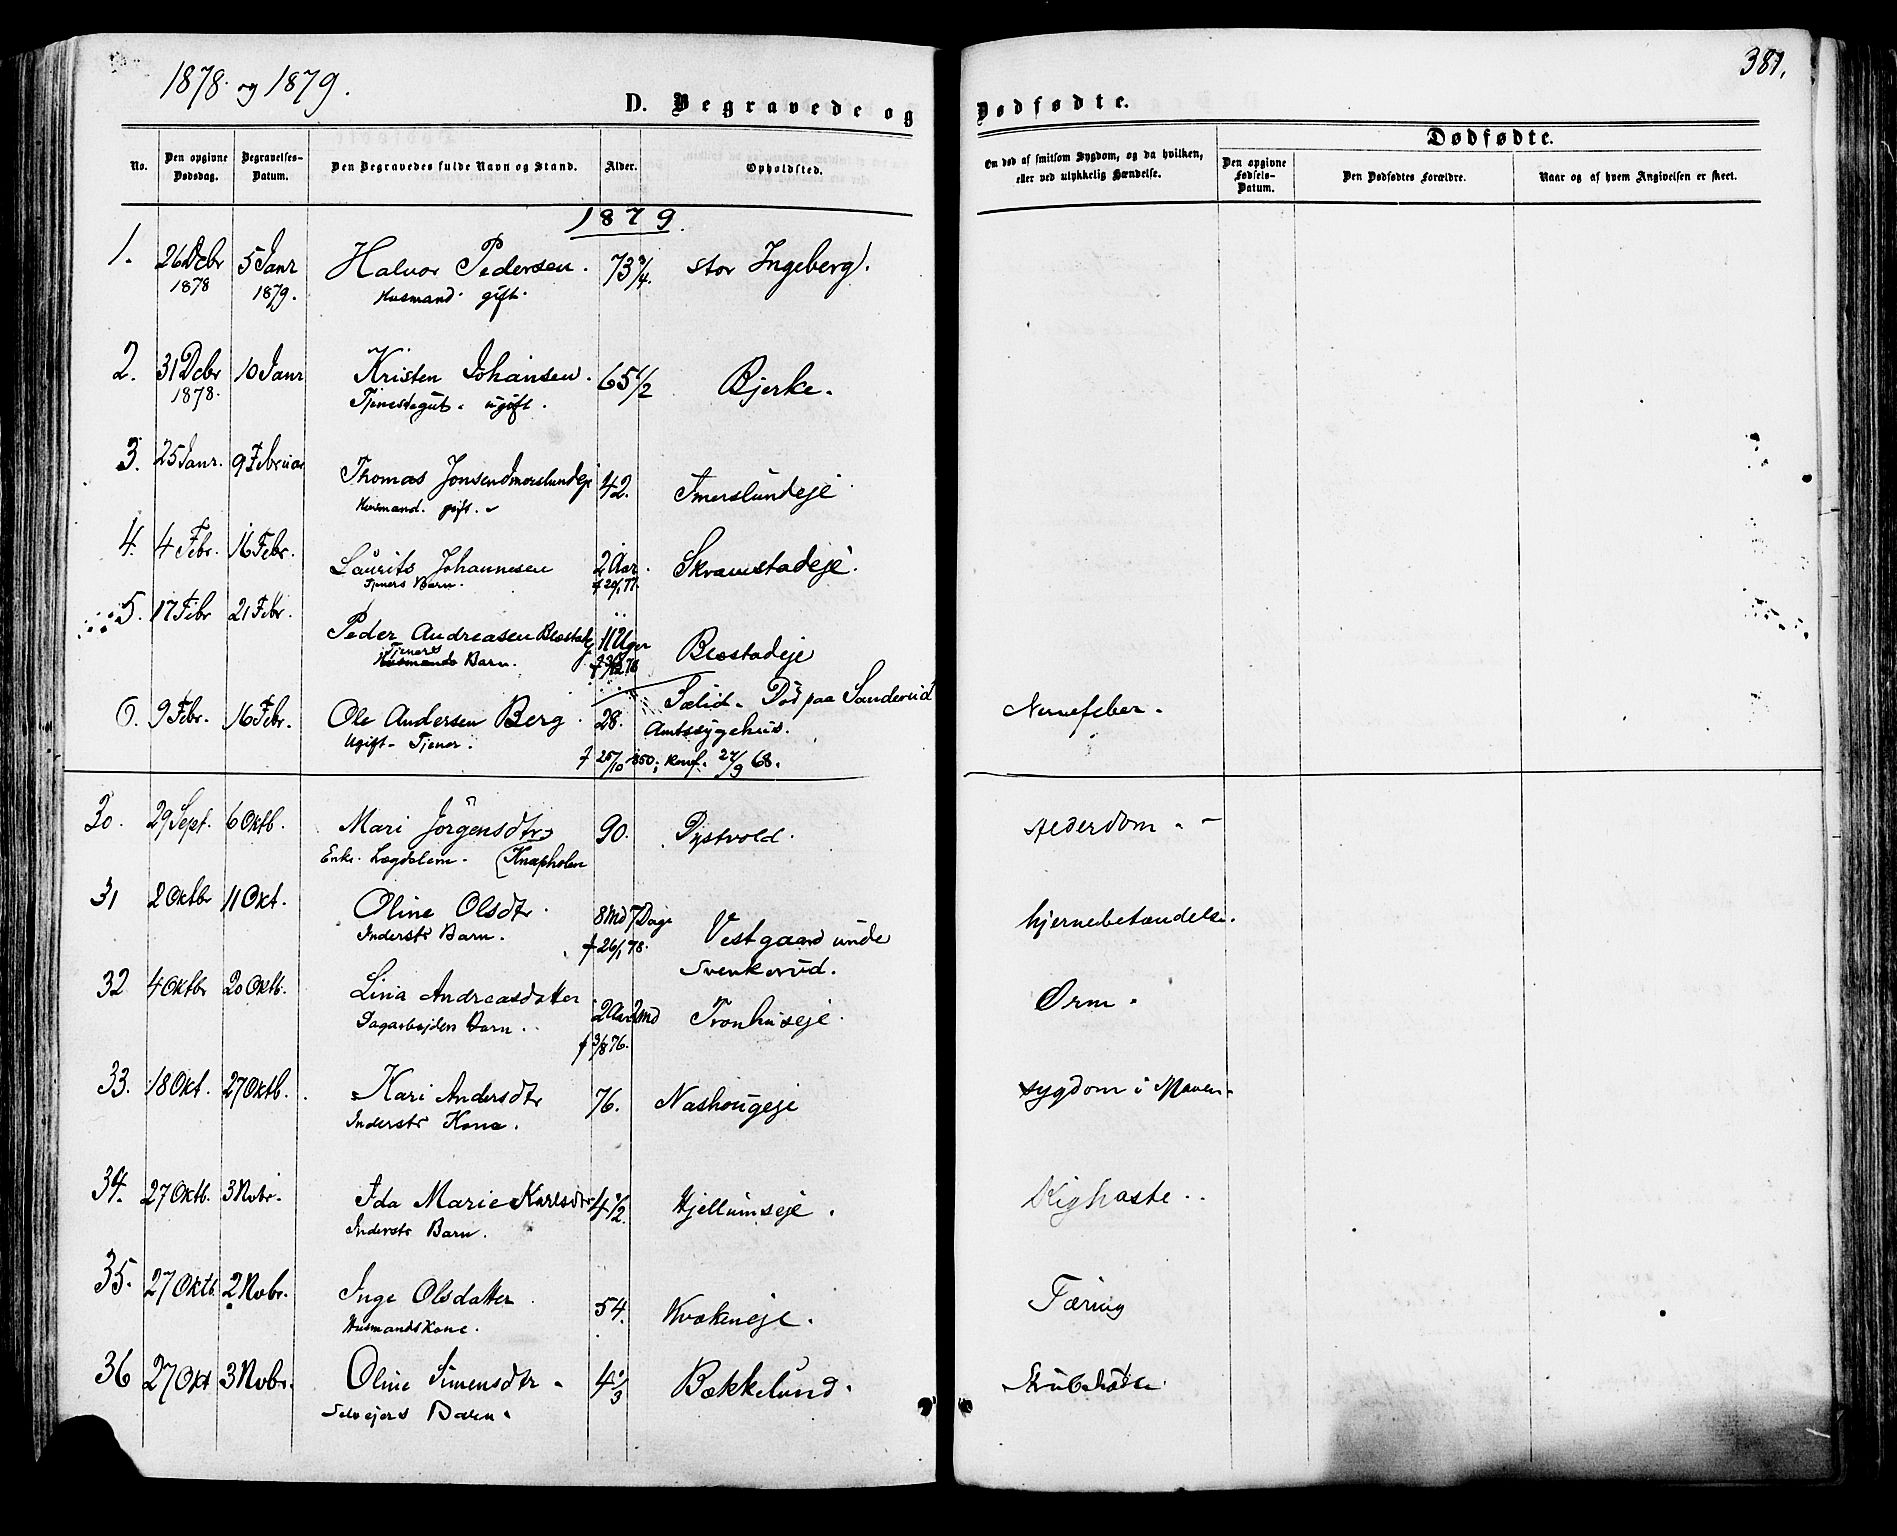 1878 og 1879.
381.
D. Begravede og Dødfødte.
No.
Den opgivne Dødsdag.
Begravelses-Datum.
Den Begravedes fulde Navn og Stand.
Alder.
Opholdsted.
Om død af smitsom Sygdom, og da hvilken, eller ved ulykkelig Hændelse.
Dødfødte.
Den opgivne Fødsels-Datum.
Den Dødfødtes Forældre.
Naar og af hvem Angivelsen er skeet.
1879.
1. 26 Dcbr 5 Janr Halvor Pedersen. 73 3/4. stor Ingeberg.
1878 1879. Husmand. gift.
2. 31 Dcbr 10 Janr Kristen Johansen. 65 1/2 Bjerke.
1878. Tjenestegut. ugift.
3. 25 Janr. 9 Februar Thomas Jonsen Imerslundeje 42. Imerslundeje
Husmand. gift.
4. 4 Febr. 16 Febr. Laurits Johannesen 2 Aar. Skramstadeje.
Tjeners Barn.
5. 17 Febr 21 Febr. Peder Andreasen 11 Uger Blæstadeje
Tjeners
Husmands Barn.
6. 9 Febr. 16 Febr. Ole Andersen Berg. 28. Sælid. Død paa Sanderud Nervefeber.
Ugift. Tjener. Amtssygehus.
f 25/10 850; konf. 27/9 68.
30. 29 Sept. 6 Oktb. Mari Jörgensdtr 90. Pystvold. Alderdom.
Enke. Lægdslem. (Knæpholen
31 2 Oktbr 11 Okt. Oline Olsdtr. 8 Md 7 Dage Vestgaard unde hjernebetændelse.
Inderstr Barn. f 26/1 78. Svenkerud.
32 4 Oktbr 20 Oktb. Lina Andreasdatter 2 Aar 2 Md Tronhuseje. Orm.
Dagarbejders Barn. f 3/8 76.
33. 18 Okt. 27 Oktb. Kari Andersdtr 76. Nashougeje sygdom i Maven.
Inderstr Kone.
34. 27 Oktb. 3 Nobr. Ida Marie Karlsdtr 4 1/2. Hjellumseje. Kighoste.
Inderstr Barn.
35. 27 Oktb. 2 Nobr. Inge Olsdatter 54. Kvækeneje. Tæring
Husmandskone.
36 27 Okt 3 Nobr. Oline Simensdtr. 4 1/3 Bækkelund.
Selvejers Barn.